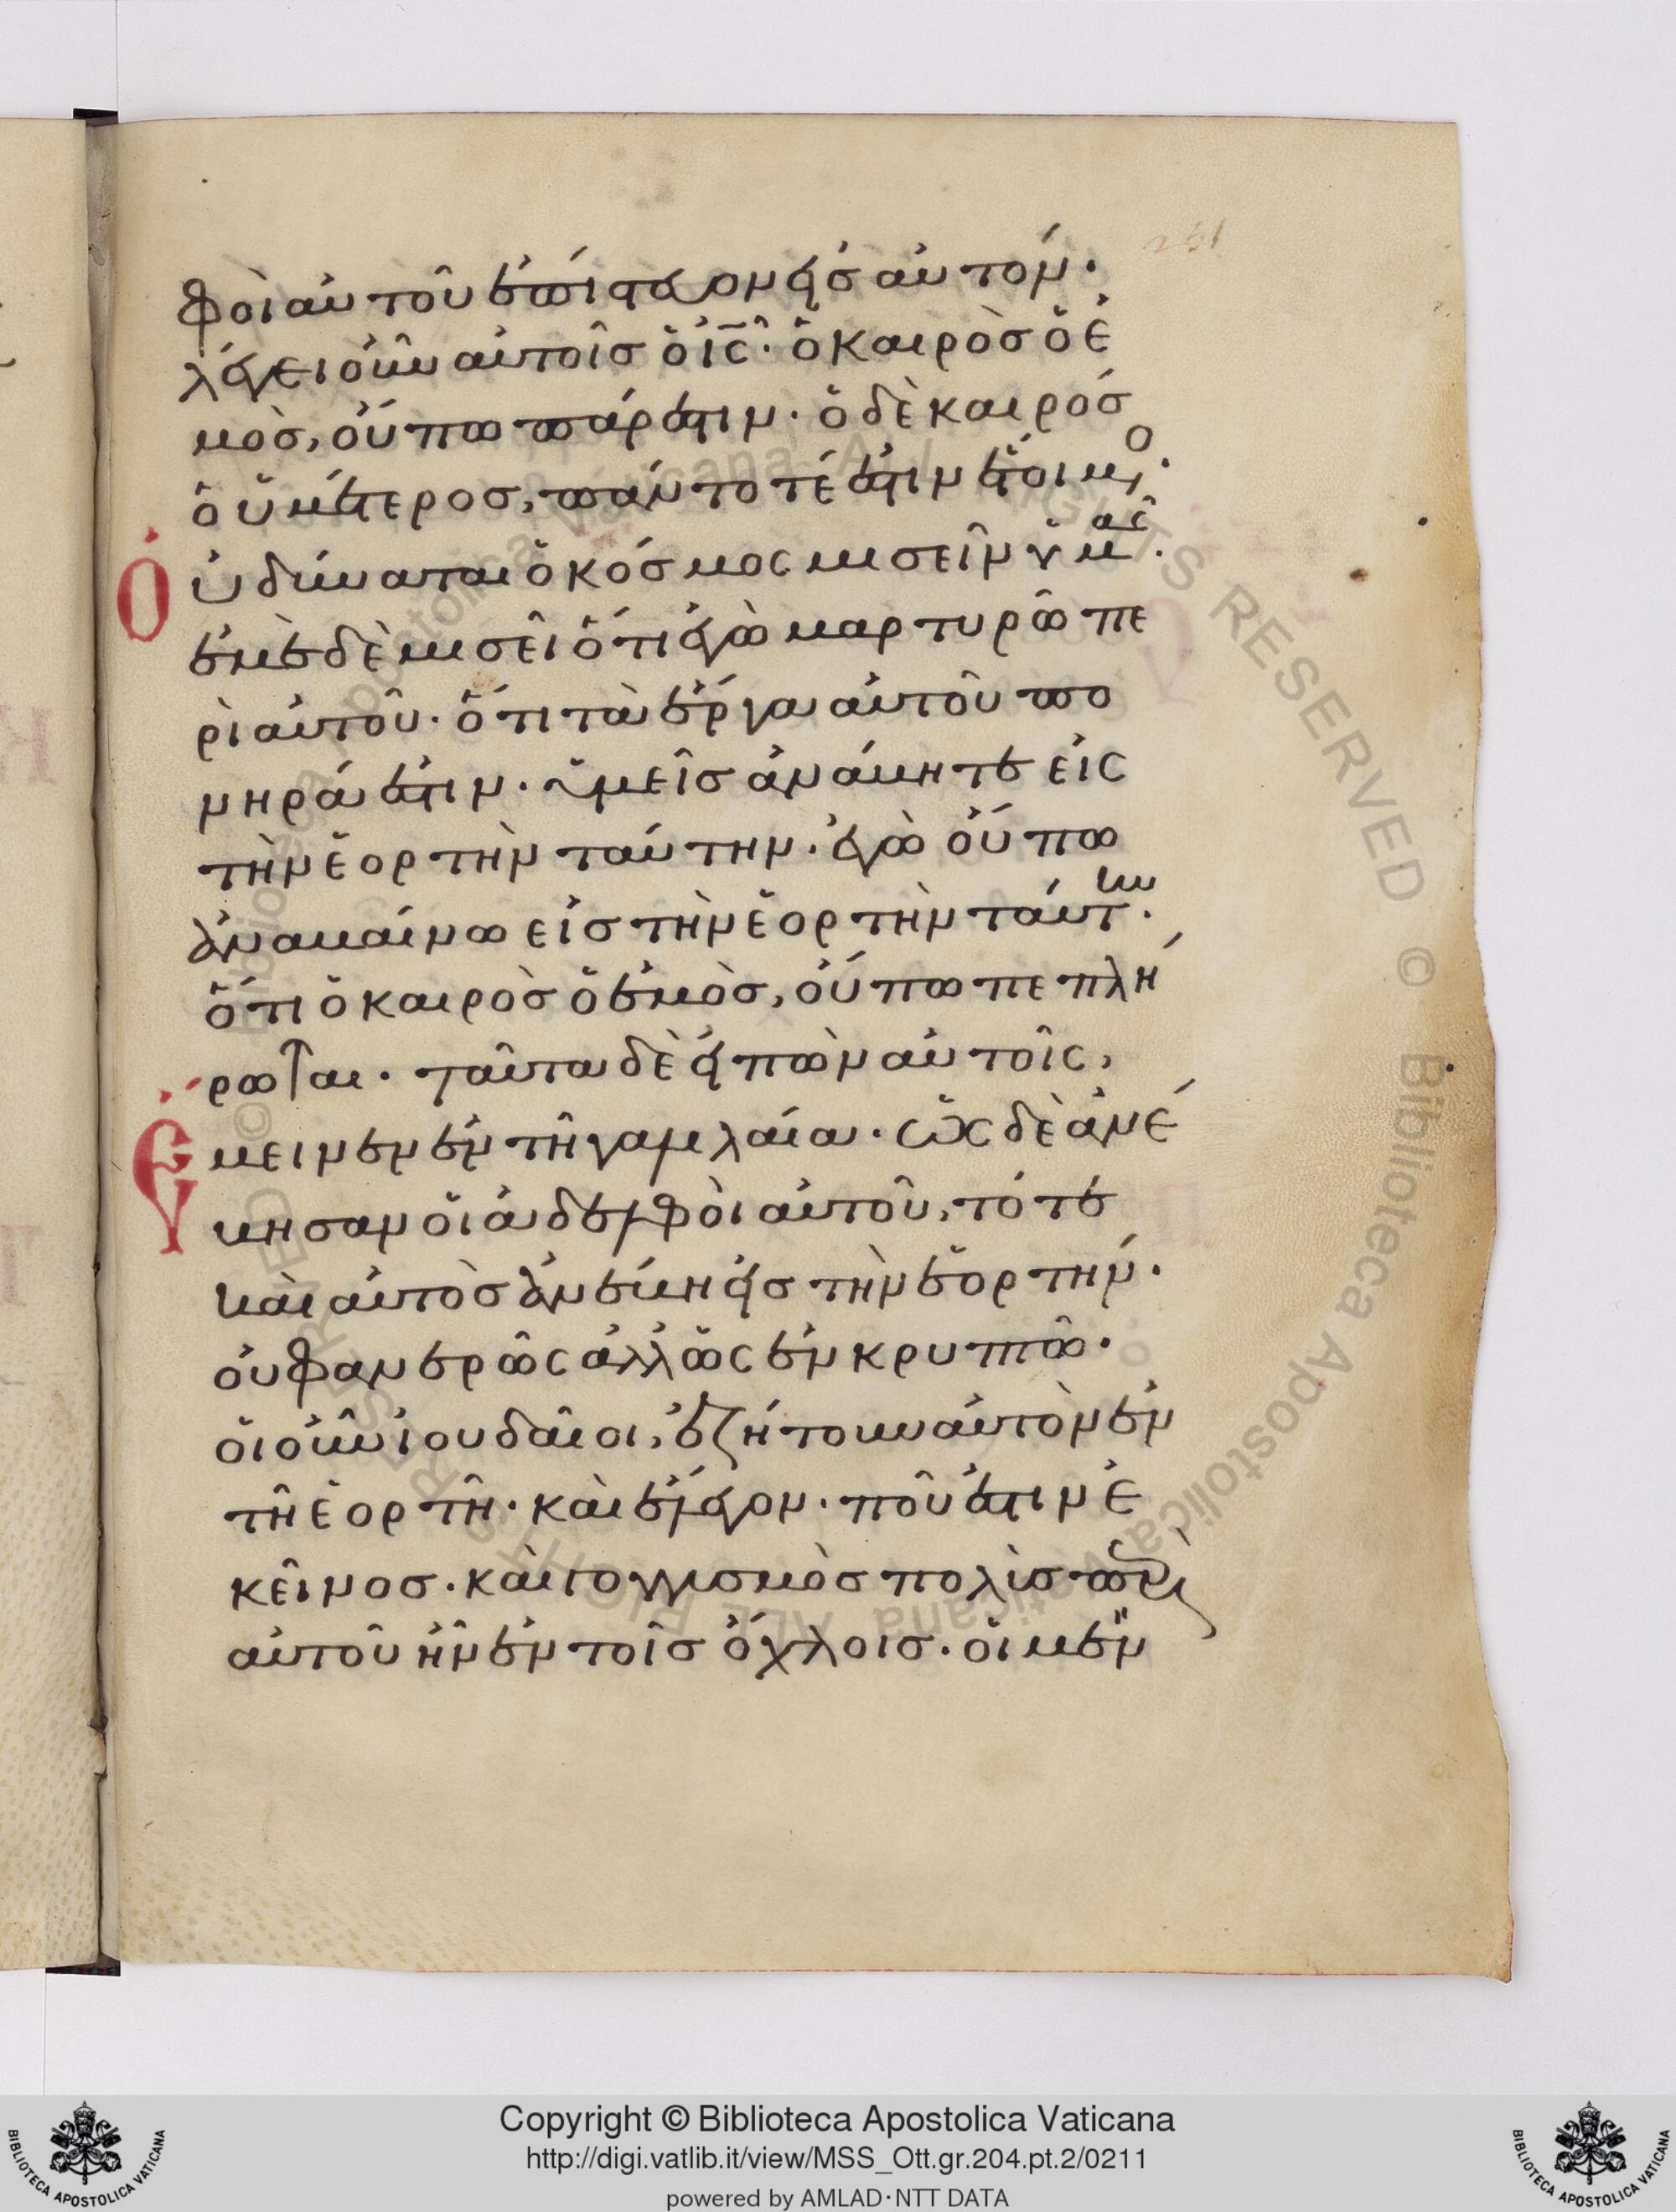 261
φοὶ αὐτοῦ ἐπίστευον εἰσ αὐτόν·
λέγει οὖν αὐτοῖσ ὁ ἰ̅ς̅· ὁ καιρὸσ ὁ ἐ
μὸσ, οὔπω πάρεστιν· ὁ δὲ καιρόσ
ὁ ὑμέτεροσ, πάντοτέ ἐστιν ἕτοιμο·
Ο
ὐ δύναται ὁ κόσμος μισεῖν ὑμᾶς·
ἐμὲ δὲ μισεῖ ὅτι ἐγὼ μαρτυρῶ πε
ρὶ αὐτοῦ· ὅτι τὰ ἔργα αὐτοῦ πο
νηρά ἐστιν· ὑμεῖσ ἀνάβητε εἰς
τὴν ἑορτὴν ταύτην· ἐγὼ οὔπω
ἀναβαίνω εἰσ τὴν ἑορτὴν ταύτην·
ὅτι ὁ καιρὸσ ὁ ἐμὸσ, οὔπω πεπλή
ρωται· ταῦτα δὲ εἰπὼν αὐτοῖς,
Ε
μεινεν ἐν τῆ γαλιλαία· ὡς δὲ ἀνέ
βησαν οἱ ἀδελφοὶ αὐτοῦ, τότε
καὶ αὐτὸσ ἀνέβη εἰσ τὴν ἑορτήν·
οὐ φανερῶς ἀλλ' ὡς ἐν κρυπτῶ·
οἱ οὖν ἰουδαῖοι, ἐζήτουν αὐτὸν ἐν
τῆ ἑορτῆ· καὶ ἔλεγον· ποῦ ἐστιν ἐ
κεῖνοσ· καὶ γογγισμὸσ πολὶσ περὶ
αὐτοῦ ἦν ἐν τοῖσ ὄχλοισ· οἱ μὲν
Copyright © Biblioteca Apostolica Vaticana
http://digi.vatlib.it/view/MSS_Ott.gr.204.pt.2/0211
powered by AMLAD·NTT DATA
BIBLIOTECA APOSTOLICA VATICANA
BIBLIOTECA APOSTOLICA VATICANA